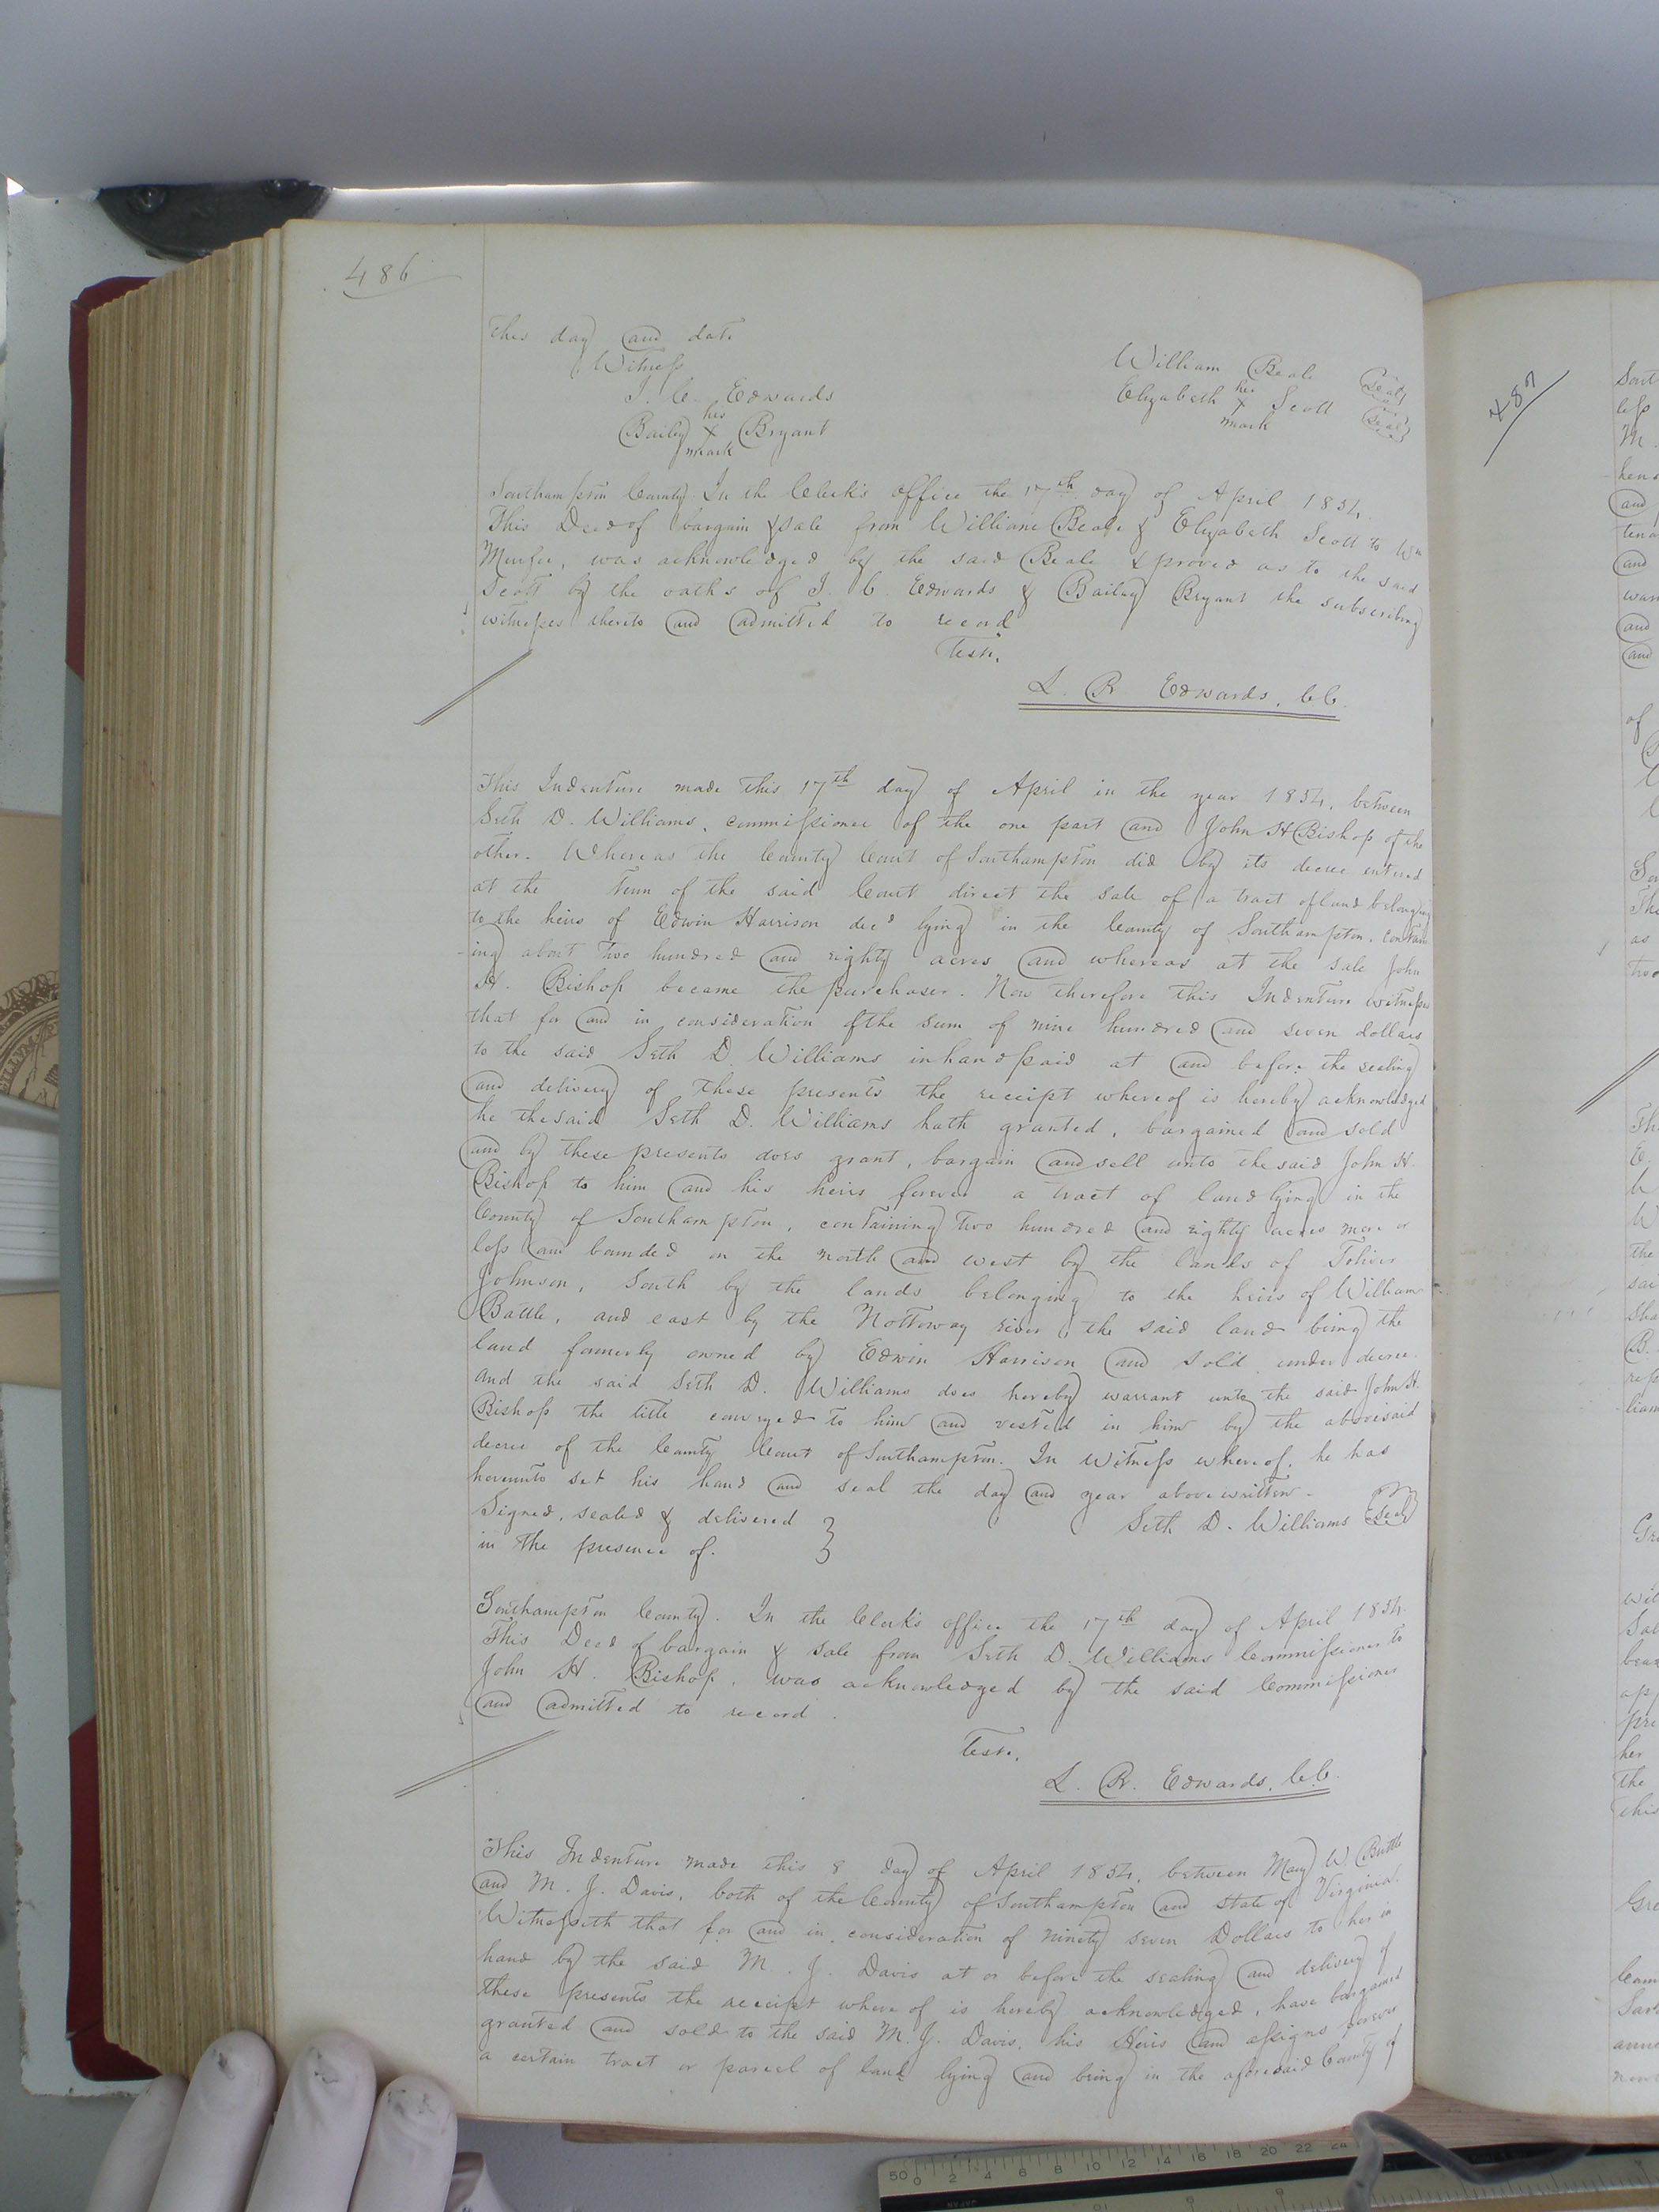 486
this day and date
Witness
William Beale Seal
J. C. Edwards
Elizabeth her x mark Scott Seal
Bailey his x mark Bryant
Southampton County. In the Clerk's office the 17th day of April 1854.
This Deed of bargain & sale from William Beale & Elizabeth Scott to Wm
Murfee, was acknowledged by the said Beale & proved as to the said
Scott by the oaths of J. C. Edwards & Bailey Bryant the subscribing
witnesses thereto and admitted to record
Teste.
L. R. Edwards, C.C.
This Indenture made this 17th day of April in the year 1854, between
Seth D. Williams, commissioner of the one part and John H Bishop of the
other. Whereas the County Court of Southampton did by its decree entered
at the Term of the said Court direct the sale of a tract of land belonging
to the heirs of Edwin Harrison decd lying in the County of Southampton, contain
-ing about two hundred and eighty acres and whereas at the sale John
H. Bishop became the purchaser. Now therefore this Indenture witnesses
that for and in consideration of the sum of nine hundred and seven dollars
to the said Seth D. Williams in hand paid at and before the sealing
and delivery of these presents the receipt whereof is hereby acknowledged
he the said Seth D. Williams hath granted, bargained and sold
and by these presents does grant, bargain and sell unto the said John H.
Bishop to him and his heirs forever a tract of land lying in the
County of Southampton, containing two hundred and eighty acres more or
less and bounded on the north and west by the lands of Toliver
Johnson, South by the lands belonging to the heirs of William
Battle, and east by the Nottoway river, the said land being the
land formerly owned by Edwin Harrison and sold under decree.
And the said Seth D. Williams does hereby warrant unto the said John H.
Bishop the title conveyed to him and vested in him by the abovesaid
decree of the County Court of Southampton. In Witness whereof, he has
hereunto set his hand and seal the day and year above written.
Signed, sealed & delivered
Seth D. Williams Seal
in the presence of.
Southampton County. In the Clerk's office the 17th day of April 1854.
This Deed of bargain & sale from Seth D. Williams Commissioner to
John H. Bishop, was acknowledged by the said Commissioner
and admitted to record.
Teste.
L. R. Edwards, C.C.
This Indenture made this 8 day of April 1854, between Mary W. Battle
and M. J. Davis, both of the County of Southampton and State of Virginia.
Witnesseth that for and in consideration of ninety seven Dollars to her in
hand by the said M. J. Davis at or before the sealing and delivery of
these presents the receipt where of is hereby acknowledged, have bargained
granted and sold to the said M. J. Davis, his Heirs and assigns forever
a certain tract or parcel of land lying and being in the aforesaid County of
487